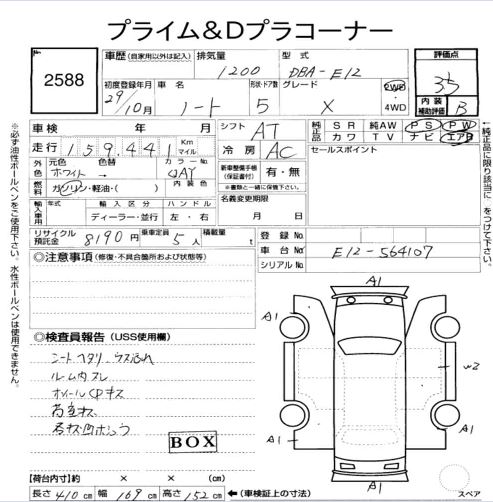 プライム&Dプラコーナー
No.
2588
車歴(自家用以外は記入) 排気量 型式
1200 DBA-E12
評価点
3.5
初度登録年月 車名 形状・ドア数 グレード
29/10月 ノート 5 X
2WD・4WD
内装補助評価 B
車検 年 月
シフト AT
純正品 SR 純AW PS PW
カワ TV ナビ エアB
走行 159,441 Km マイル
冷房 AC
セールスポイント
外色 元色 色替 カラーNo.
ホワイト → QAY
新車整備手帳(保証書付) 有・無
※書類と一緒に保管下さい。
燃料 ガソリン・軽油・( ) 内装色
名義変更期限
月 日
輸入車用 年式 輸入区分 ハンドル
ディーラー・並行 左・右
リサイクル預託金 8190円 乗車定員 5人 積載量 t
登録No.
車台No. E12-564107
シリアルNo.
◎注意事項(修復・不具合箇所および状態等)
◎検査員報告(USS使用欄)
シートヘタリ
ルーム内スレ
BOX
【荷台内寸】長さ × 幅 × 高さ cm
長さ 410cm 幅 169cm 高さ 152cm ←(車検証上の寸法)
A1
A1
A1
A1
W2
A1
スペア
※必ず油性ボールペンをご使用下さい。水性ボールペンは使用できません。
※純正品に限り該当に○をつけて下さい